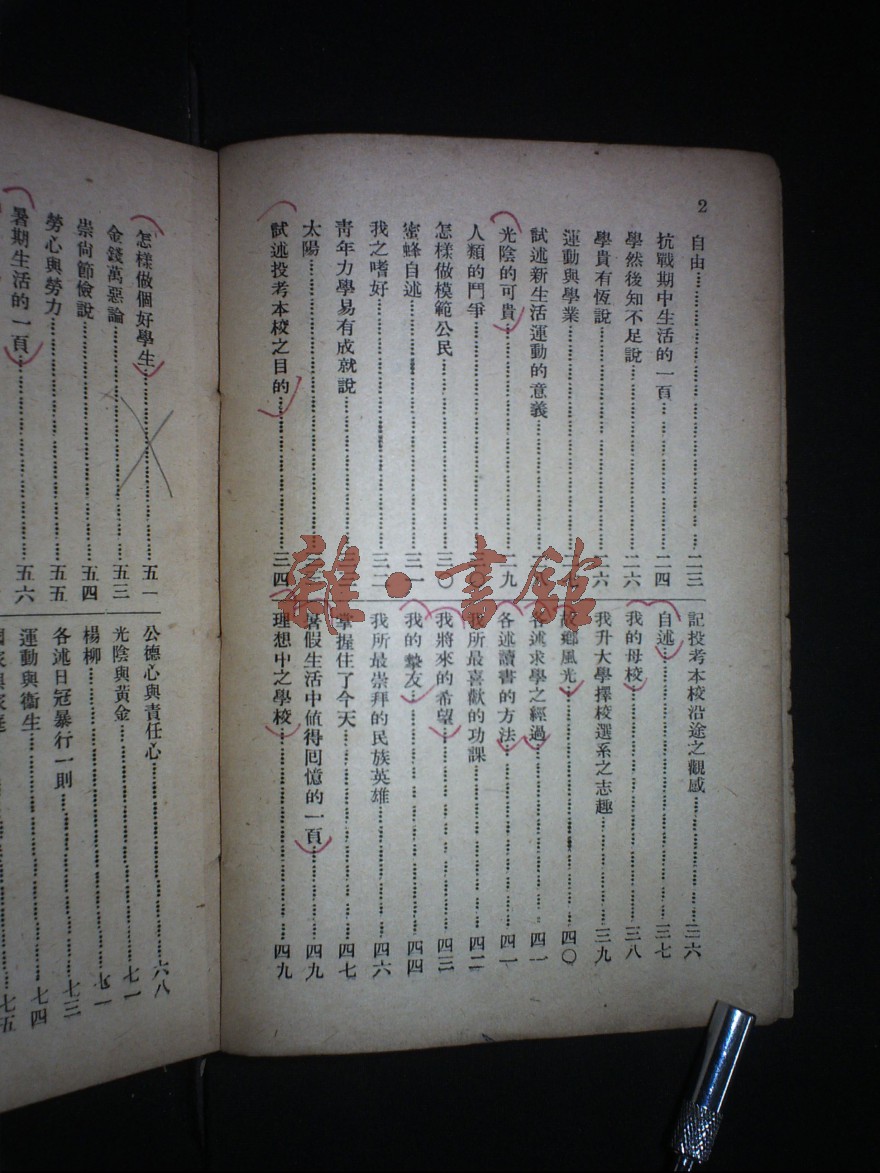 2
自由……二三
抗戰期中生活的一頁……二四
學然後知不足說……二六
學貴有恆說……二六
運動與學業……
試述新生活運動的意義……
光陰的可貴……二九
人類的鬥爭……三〇
怎樣做模範公民……三〇
蜜蜂自述……三一
我之嗜好……三二
青年力學易有成就說……
太陽……
試述投考本校之目的……三四
記投考本校沿途之觀感……三六
自述……三七
我的母校……三八
我升大學擇校選系之志趣……三九
故鄉風光……四〇
各述求學之經過……四一
各述讀書的方法……四一
我所最喜歡的功課……四二
我將來的希望……四三
我的摯友……四四
我所最崇拜的民族英雄……四六
掌握住了今天……四七
暑假生活中值得回憶的一頁……四九
理想中之學校……四九
怎樣做個好學生……五一
金錢萬惡論……五三
崇尚節儉說……五四
勞心與勞力……五五
暑期生活的一頁……五六
公德心與責任心……六八
光陰與黃金……七一
楊柳……七一
各述日寇暴行一則……七三
運動與衞生……七四
七五
雜·書館